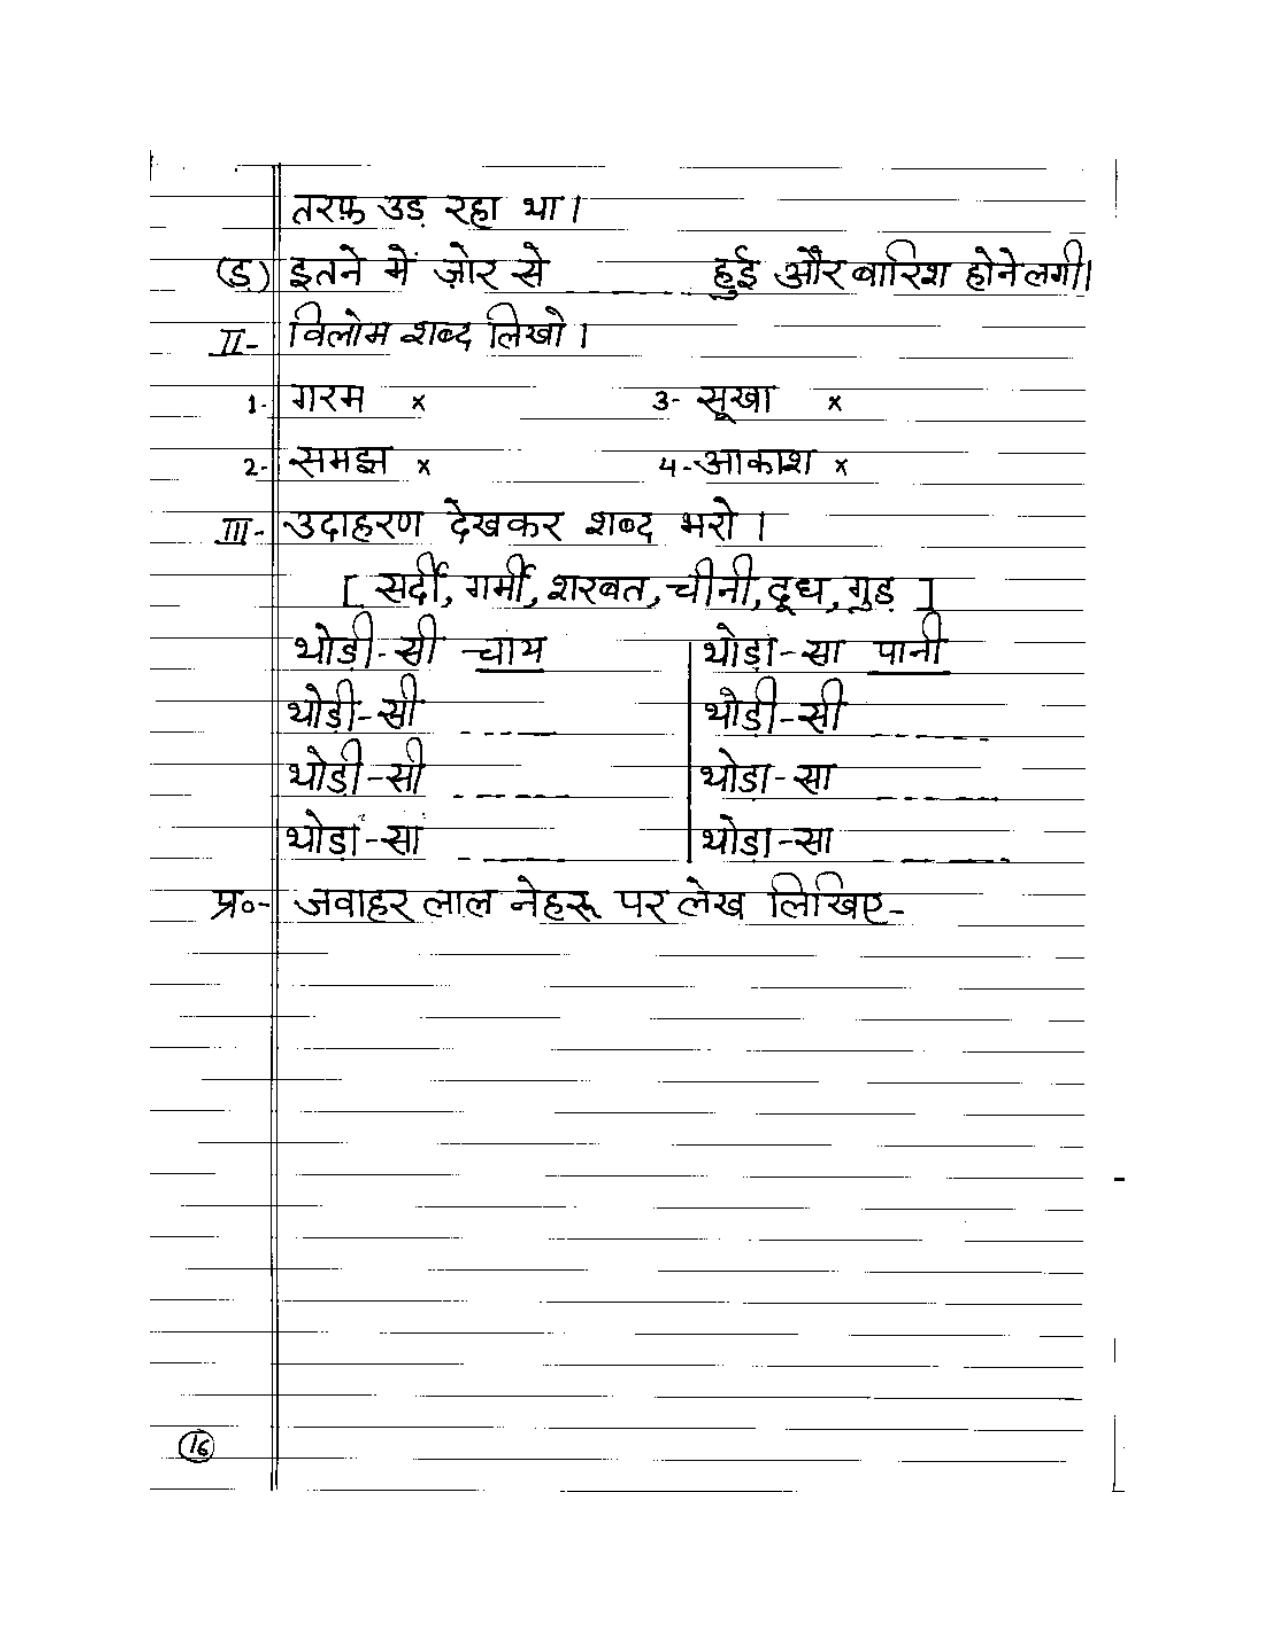 तरफ़ उड़ रहा था।
(ड.) इतने में ज़ोर से ______ हुई और बारिश होने लगी।
II- विलोम शब्द लिखो।
1- गरम x 3- सूखा x
2- समझ x 4- आकाश x
III- उदाहरण देखकर शब्द भरो।
[ सर्दी, गर्मी, शरबत, चीनी, दूध, गुड़ ]
थोड़ी-सी चाय थोड़ा-सा पानी
थोड़ी-सी ______ थोड़ी-सी ______
थोड़ी-सी ______ थोड़ा-सा ______
थोड़ा-सा ______ थोड़ा-सा ______
प्र०- जवाहर लाल नेहरू पर लेख लिखिए-
16